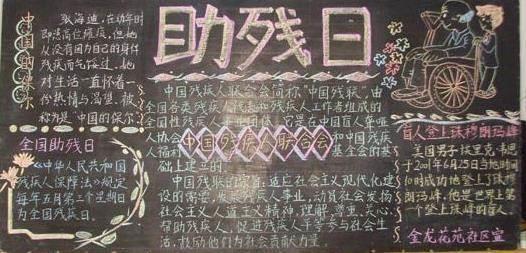 助残日
中国的保尔
张海迪，在幼年时
即患高位瘫痪，但她
从没有因为自己的身体
残疾而气馁过，她
对生活一直怀着一
份热情与渴望，被
称为是"中国的保尔"
全国助残日
《中华人民共和国
残疾人保障法》规定
每年五月第三个星期日
为全国残疾日。
中国残疾人联合会简称"中国残联"，由
全国各类残疾人代表和残疾人工作者组成的
全国性残疾人事业团体，它是在中国盲人聋哑
人协会
和中国残疾人
福利
基金会的基
础上建立的。
中国残疾人联合会
中国残联的宗旨：适应社会主义现代化建
设的需要，发展残疾人事业，动员社会发扬
社会主义人道主义精神，理解，尊重，关心，
帮助残疾人，促进残疾人平等参与社会生
活，鼓励他们为社会贡献力量。
盲人登上珠穆朗玛峰
美国男子埃里克·韦恩
于2001年6月25日当地时间
10时成功地登上了珠穆
朗玛峰，他是世界上第
一个登上珠峰的盲人
金龙花苑社区宣